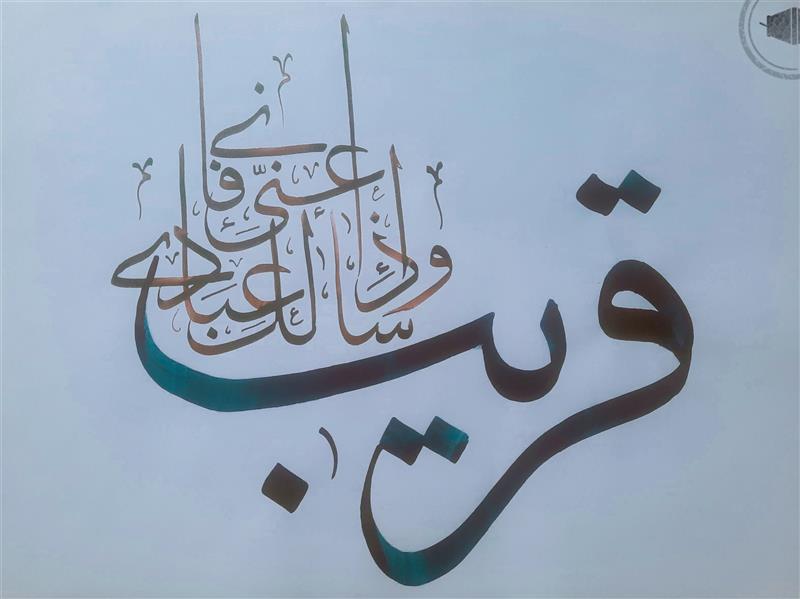 وإذا سألك عبادي عنّي فإني
قريب